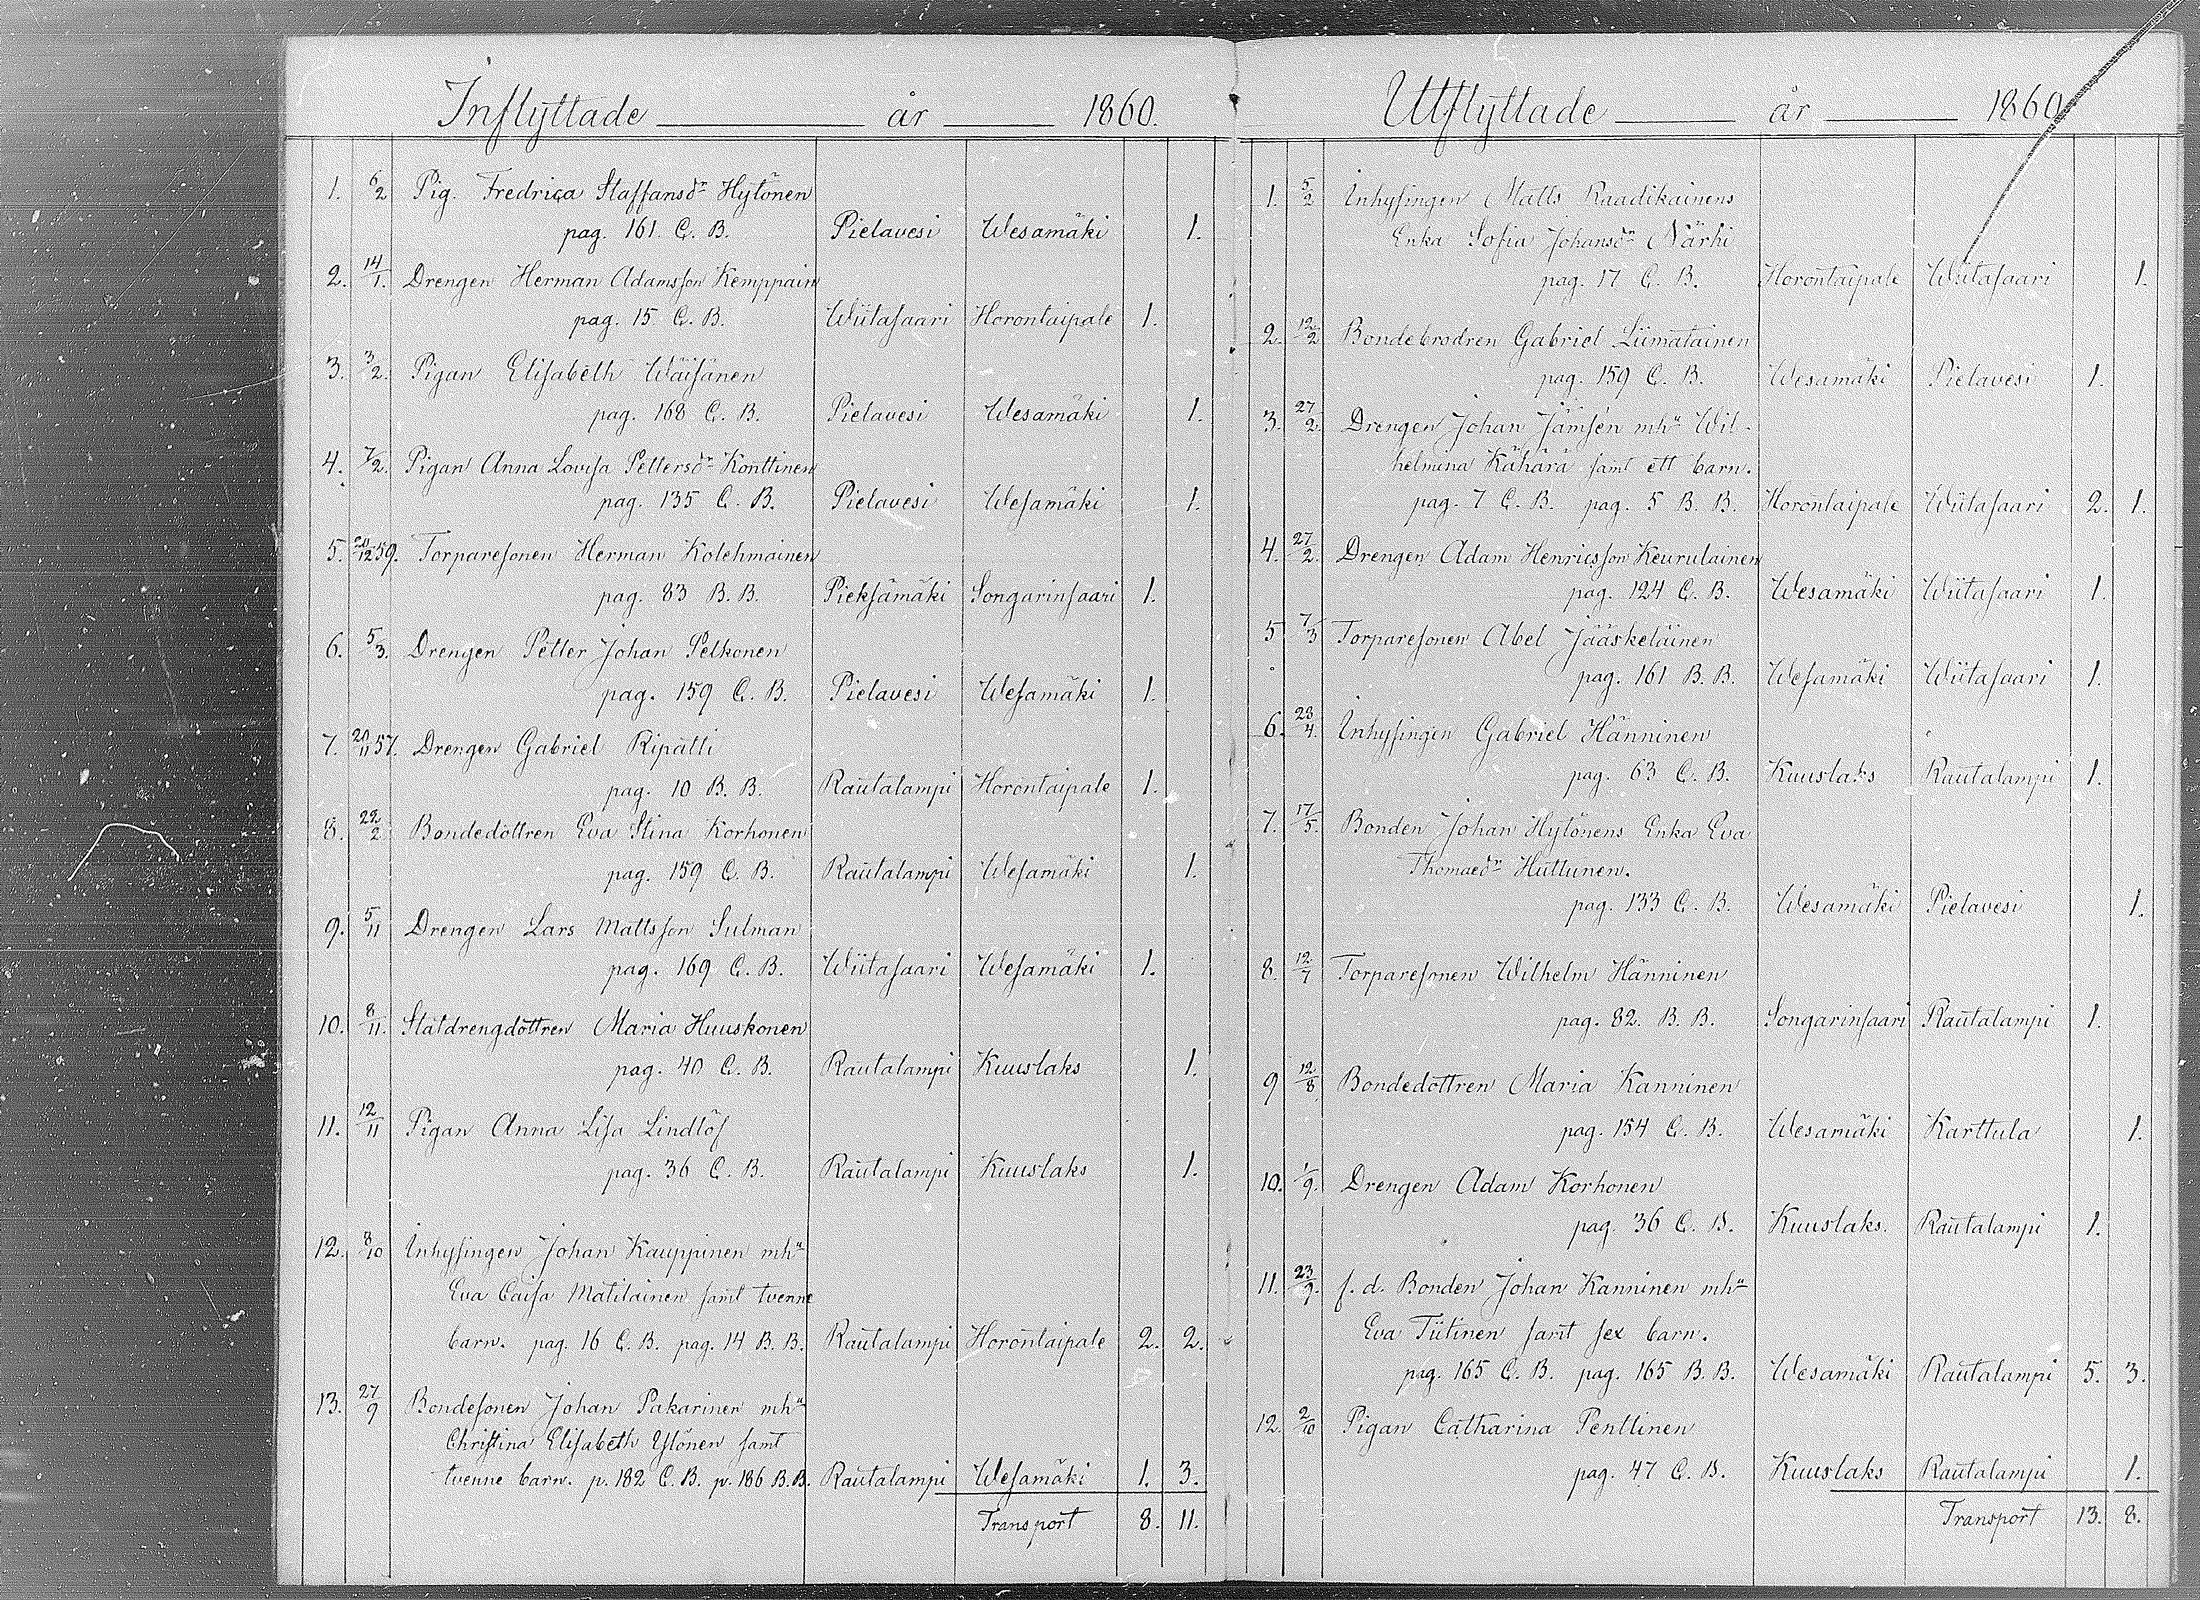 Inflyttade år 1860.
1. 6/2 Pig. Fredrica Staffansdr Hytönen
pag. 161 C. B. Pielavesi Wesamäki 1.
2. 14/1. Drengen Herman Adamsson Kemppain
pag. 15 C. B. Wiitasaari Horontaipale 1.
3. 3/2. Pigan Elisabeth Wäisänen
pag. 168 C. B. Pielavesi Wesamäki 1.
4. 7/2. Pigan Anna Lovisa Pettersdr Konttinen
pag. 135 C. B. Pielavesi Wesamäki 1.
5. 20/12 59. Torparesonen Herman Kolehmainen
pag. 83 B. B. Pieksämäki Songarinsaari 1.
6. 5/3. Drengen Petter Johan Pelkonen
pag. 159 C. B. Pielavesi Wesamäki 1.
7. 20/11 57. Drengen Gabriel Ripatti
pag. 10 B. B. Rautalampi Horontaipale 1.
8. 22/2 Bondedottren Eva Stina Korhonen
pag. 159 C. B. Rautalampi Wesamäki 1.
9. 5/11 Drengen Lars Mattsson Sulman
pag. 169 C. B. Wiitasaari Wesamäki 1.
10. 8/11. Statdrengdottren Maria Huuskonen
pag. 40 C. B. Rautalampi Kuuslaks 1.
11. 12/11 Pigan Anna Lisa Lindlöf
pag. 36 C. B. Rautalampi Kuuslaks 1.
12. 8/10 Inhysingen Johan Kauppinen mhu
Eva Caisa Matilainen samt tvenne
barn. pag. 16 C. B. pag. 14 B. B. Rautalampi Horontaipale 2. 2.
13. 27/9 Bondesonen Johan Pakarinen mhu
Christina Elisabeth Ylönen samt
tvenne barn. p. 182 C. B. p. 186 B. B. Rautalampi Wesamäki 1. 3.
Transport 8. 11.
Utflyttade år 1860
1. 5/2 Inhysingen Matts Raadikainens
Enka Sofia Johansdr Närhi
pag. 17 C. B. Horontaipale Wiitasaari 1.
2. 12/2 Bondebrodren Gabriel Liimatainen
pag. 159 C. B. Wesamäki Pielavesi 1.
3. 27/2. Drengen Johan Jämsén mhu Wil-
helmina Kähärä samt ett barn.
pag. 7 C. B. pag. 5 B. B. Horontaipale Wiitasaari 2. 1.
4. 27/2. Drengen Adam Henricsson Keurulainen
pag. 124 C. B. Wesamäki Wiitasaari 1.
5 7/3 Torparesonen Abel Jääskeläinen
pag. 161 B. B. Wesamäki Wiitasaari 1.
6. 23/4. Inhysingen Gabriel Hänninen
pag. 63 C. B. Kuuslaks Rautalampi 1.
7. 17/5. Bonden Johan Hytönens Enka Eva
Thomaedr Huttunen.
pag. 133 C. B. Wesamäki Pielavesi 1.
8. 12/7 Torparesonen Wilhelm Hänninen
pag. 82. B. B. Songarinsaari Rautalampi 1.
9 12/8 Bondedottren Maria Kanninen
pag. 154 C. B. Wesamäki Karttula 1.
10. 1/9. Drengen Adam Korhonen
pag. 36 C. B. Kuuslaks. Rautalampi 1.
11. 23/9. f. d. Bonden Johan Kanninen mhu
Eva Tiitinen samt sex barn.
pag. 165 C. B. pag. 165 B. B. Wesamäki Rautalampi 5. 3.
12. 2/10 Pigan Catharina Penttinen
pag. 47 C. B. Kuuslaks Rautalampi 1.
Transport 13. 8.